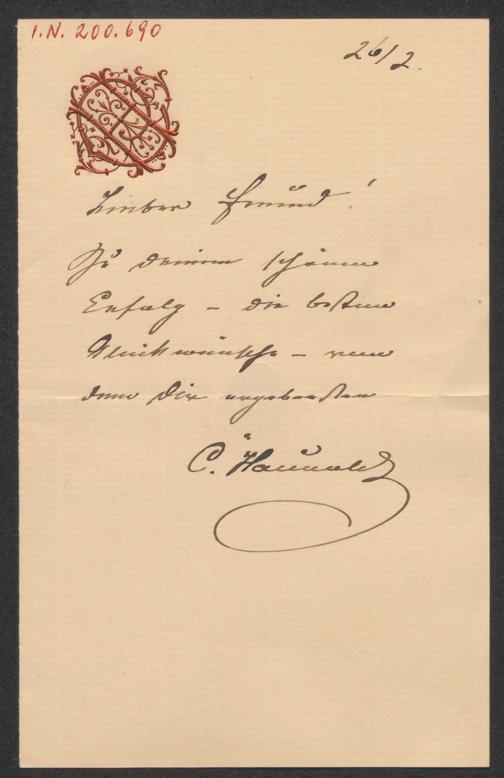 I.N. 200.690
26/2.
Lieber Freund!
Zu Deinem schönen
Erfolg – die besten
Glückwünsche – von
dem Dir ergebensten
C.